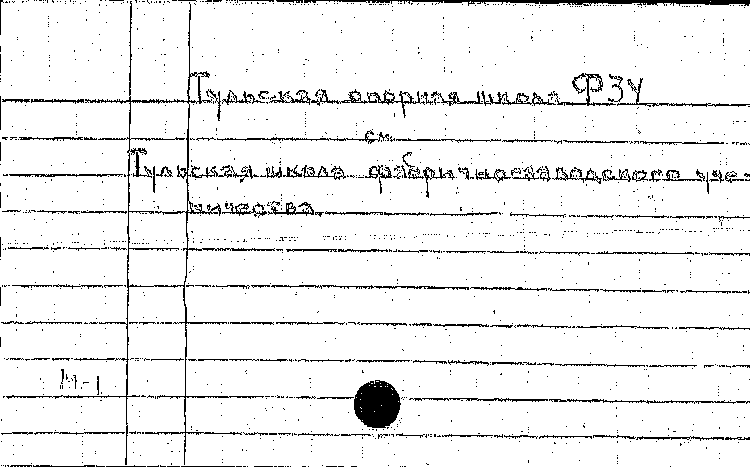 Тульская опорная школа ФЗУ
см
Тульская школа фабричнозаводского уче-
ничества.
М-1